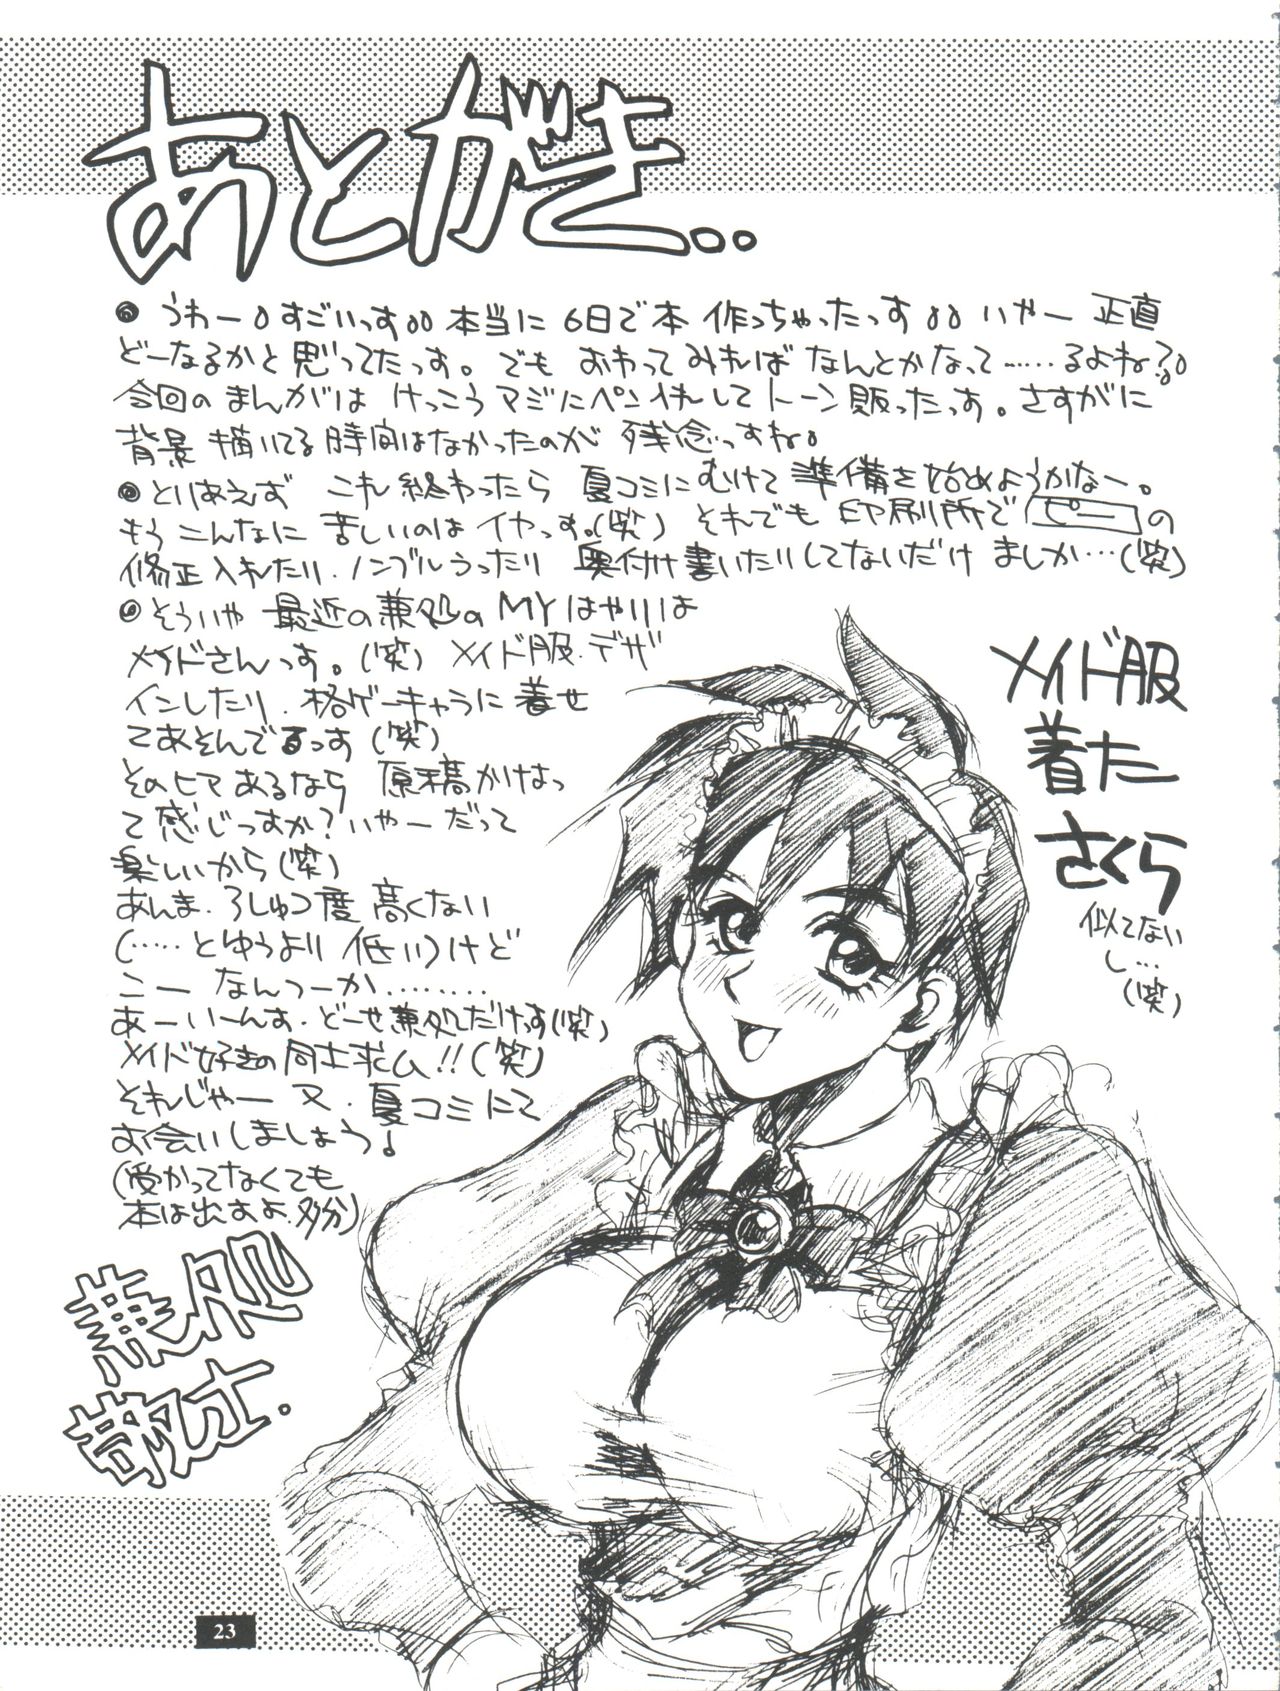 あとがき..
◎うわー すごいっす 本当に6日で本作っちゃったっす いやー 正直
どーなるかと思ってたっす。でも おわってみれば なんとかなって……るよね?
今回のまんがは けっこうマジにペン入れしてトーン貼ったっす。さすがに
背景描いてる時間はなかったのが 残念っすね。
◎とりあえず これ終わったら 夏コミにむけて 準備を始めようかなー。
もうこんなに 苦しいのはイヤっす。(笑) それでも 印刷所でピーの
修正入れたり、ノンブルうったり 奥付け書いたりしてないだけ ましか…(笑)
◎そういや 最近の兼処のMYはやりは
メイドさんっす。(笑) メイド服、デザ
インしたり、格ゲーキャラに着せ
てあそんでるっす(笑)
そのヒマあるなら 原稿かけよっ
て感じっすか?いやーだって
楽しいから(笑)
あんま、ろしゅつ度 高くない
(……とゆうより 低い)けど
こー なんつーか………
あーいーんす、どーせ兼処だけっす(笑)
メイド好きの同士求ム!!(笑)
それじゃー 又、夏コミにて
お会いしましょう!
(受かってなくても
本は出すよ、多分)
兼処
敬士.
メイド服
着た
さくら
似てない
し…
(笑)
23